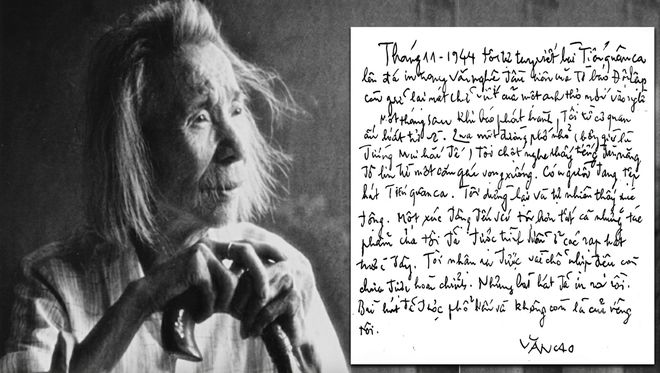 Tháng 11-1944 tôi tự tay viết bài Tiến quân ca
lên đá in trang văn nghệ đầu tiên của Tờ báo Độc lập
còn giữ lại nét chữ viết của một anh thợ mới vào nghề
Một tháng sau khi báo phát hành, Tôi từ cơ quan
ấn loát trở về. Qua một đường phố nhỏ (bây giờ là
đường Mai hắc Đế) Tôi chợt nghe thấy tiếng đàn măng
đô lin từ một căn gác vọng xuống. Có người đang tập
hát Tiến quân ca. Tôi dừng lại và tự nhiên thấy xúc
động. Một xúc động đến với tôi hơn tất cả những tác
phẩm của tôi đã được trình diễn ở các rạp hát
trước đây. Tôi nhận ra được vài chỗ nhịp điệu còn
chưa được hoàn chỉnh. Nhưng bài hát đã in ra rồi.
Bài hát đã được phổ biến và không còn là của riêng
tôi.
VĂN CAO